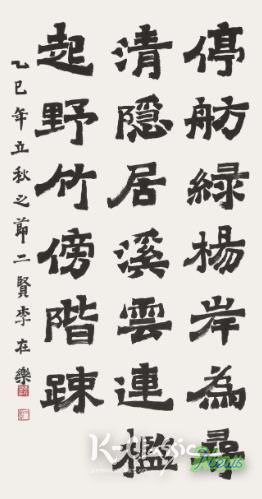 停舫綠楊岸為尋
清隱居溪雲連檻
起野竹傍階踈
乙巳年立秋之節二賢李在樂
K-Classic
News